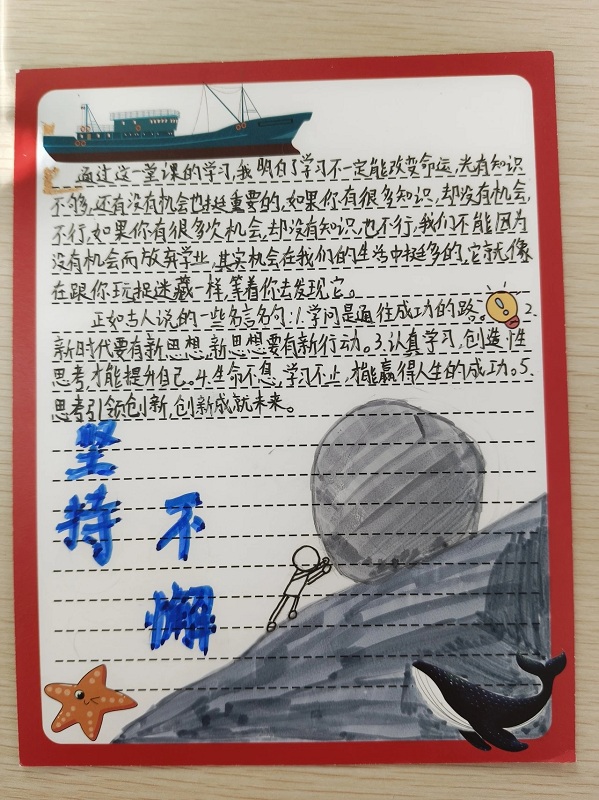 通过这一堂课的学习,我明白了学习不一定能改变命运,光有知识
不够,还有没有机会也挺重要的,如果你有很多知识,却没有机会,
不行,如果你有很多次机会,却没有知识,也不行,我们不能因为
没有机会而放弃学业,其实机会在我们的生活中挺多的,它就像
在跟你玩捉迷藏一样,等着你去发现它。
正如古人说的一些名言名句:1.学问是通往成功的路。2.
新时代要有新思想,新思想要有新行动。3.认真学习,创造性
思考,才能提升自己。4.生命不息,学习不止,才能赢得人生的成功。5.
思考引领创新,创新成就未来。
坚持
不懈